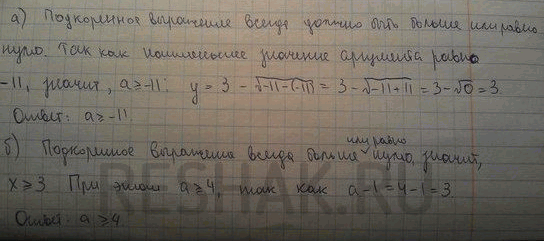 а) Подкоренное выражение всегда должно быть больше или равно
нулю. Так как наименьшее значение аргумента равно
-11, значит, a ≥ -11: y = 3 - √(-11-(-11)) = 3 - √(-11+11) = 3 - √0 = 3.
Ответ: a ≥ -11.
б) Подкоренное выражение всегда больше или равно нулю, значит,
x ≥ 3. При этом a ≥ 4, так как a-1 = 4-1 = 3.
Ответ: a ≥ 4
RESHAK.RU